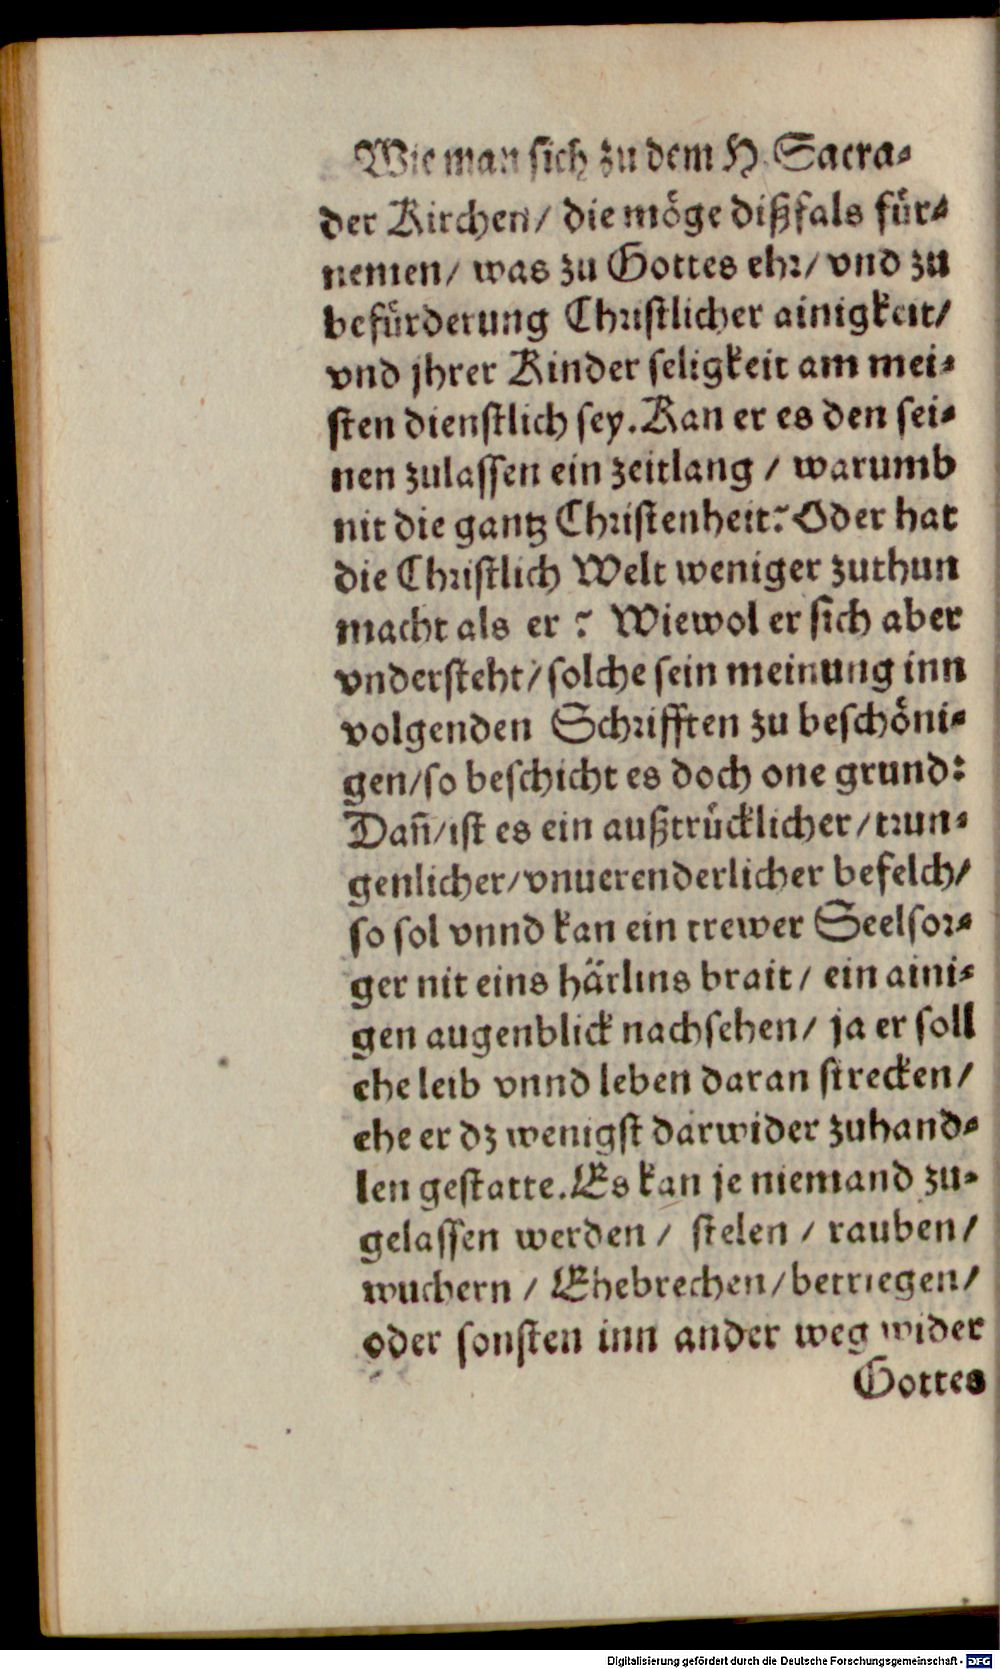 Wie man sich zu dem H. Sacra-
der Kirchen/ die möge dißfals für-
nemen/ was zu Gottes ehr/ vnd zu
befürderung Christlicher ainigkeit/
vnd jhrer Kinder seligkeit am mei-
sten dienstlich sey. Kan er es den sei-
nen zulassen ein zeitlang / warumb
nit die gantz Christenheit? Oder hat
die Christlich Welt weniger zuthun
macht als er ? Wiewol er sich aber
vndersteht/ solche sein meinung inn
volgenden Schrifften zu beschöni-
gen/ so beschicht es doch one grund:
Dañ/ ist es ein außtrücklicher/ trun-
genlicher/ vnuerenderlicher befelch/
so sol vnnd kan ein trewer Seelsor-
ger nit eins härlins brait/ ein aini-
gen augenblick nachsehen/ ja er soll
ehe leib vnnd leben daran strecken/
ehe er dz wenigst darwider zuhand-
len gestatte. Es kan je niemand zu-
gelassen werden / stelen / rauben/
wuchern / Ehebrechen/ betriegen/
oder sonsten inn ander weg wider
Gottes
Digitalisierung gefördert durch die Deutsche Forschungsgemeinschaft - DFG